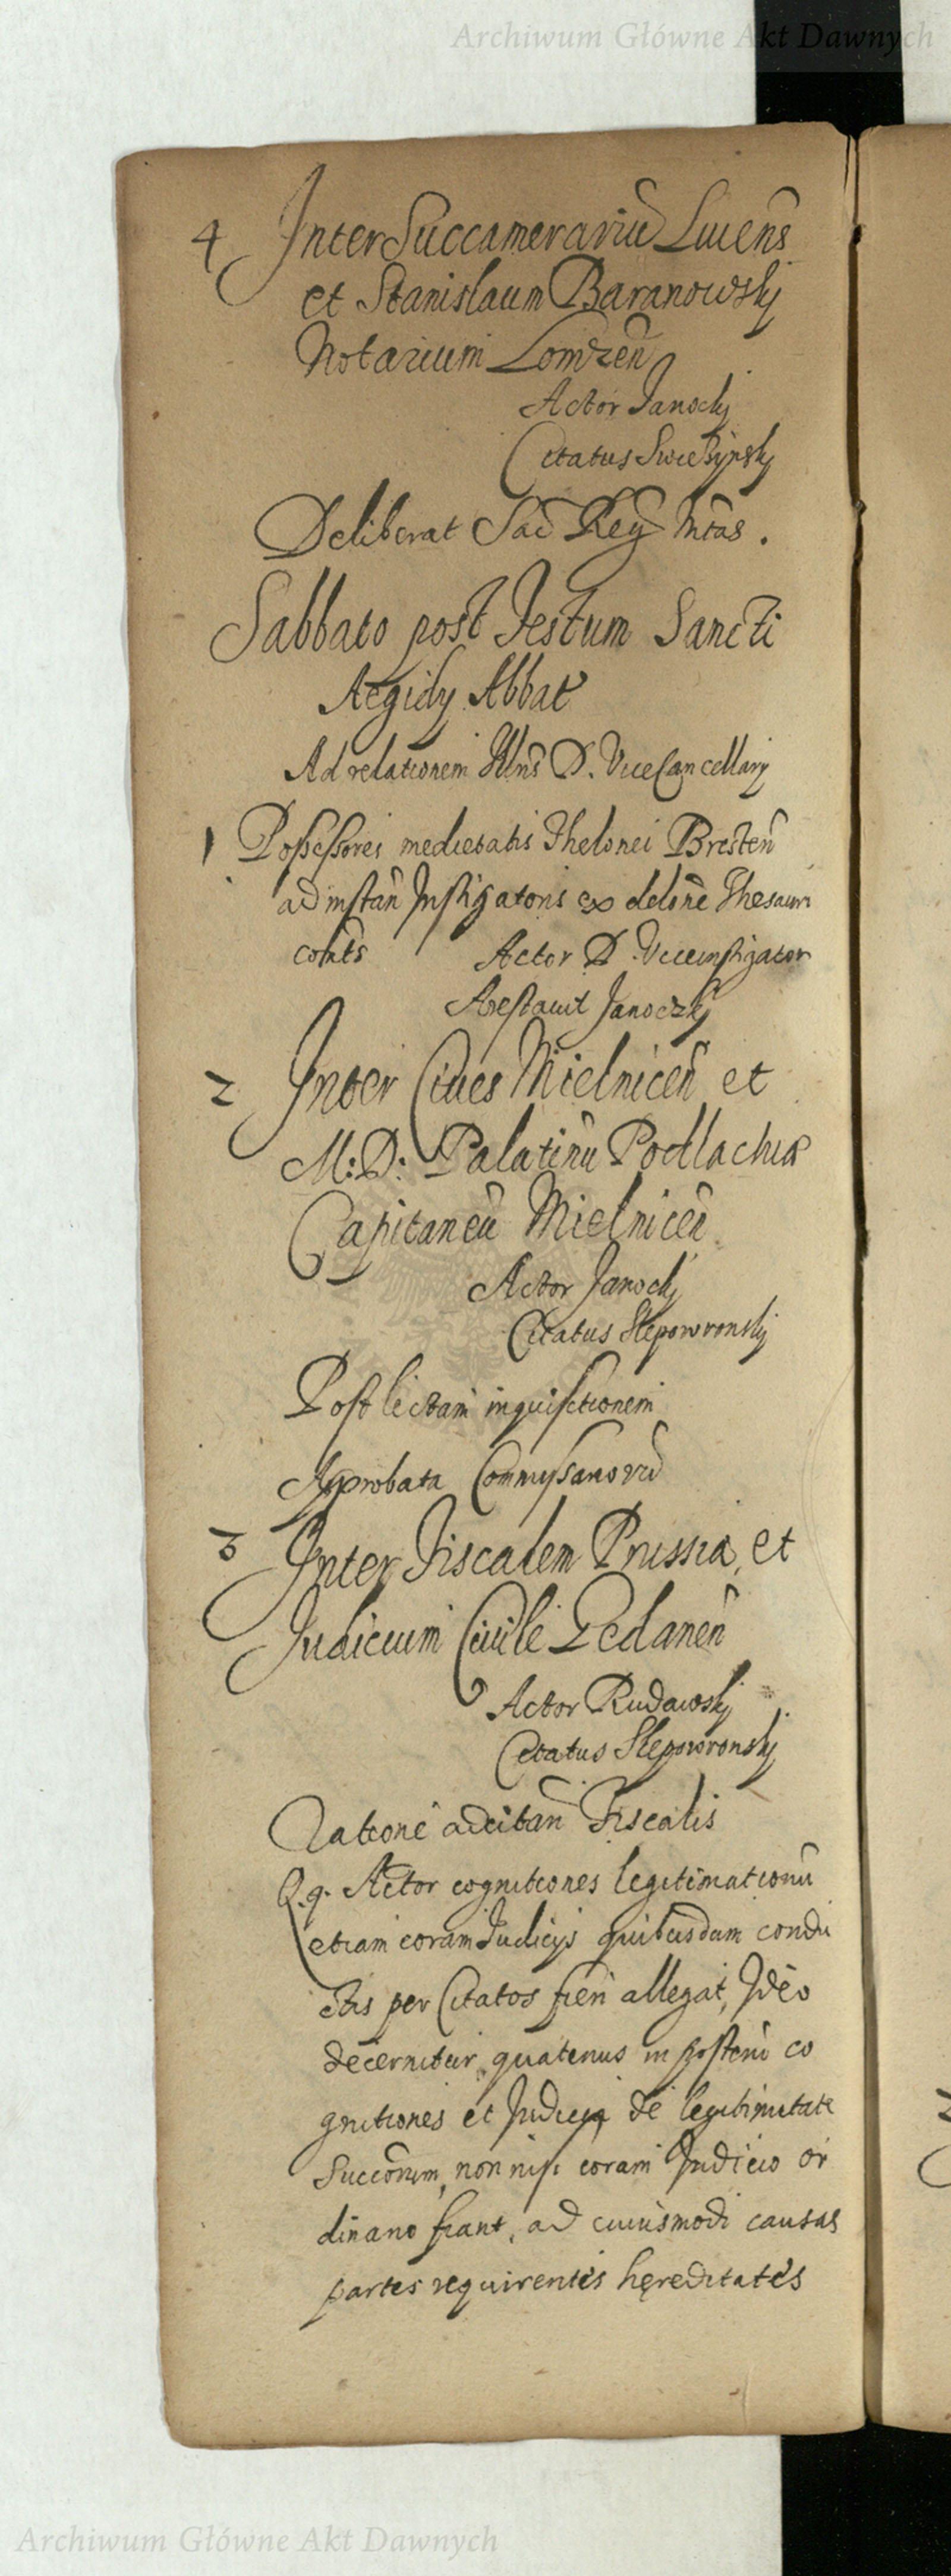 Archiwum Główne Akt Dawnych
4 Inter Succamerariū Liuens
et Stanislaum Baranowskj
Notarium Lomzen̄
Actor Janockj
Citatus
Deliberat Sac̄ Reg Mtas.
Sabbato post Festum Sancti
Aegidy Abbat
Ad relationem Illris D. ViceCancellarij
1 Possessores medietatis Thelonei Bresten̄
ad instan̄ Instigatoris ex delōne Thesauri
Actor D. Viceinstigator
Arestauit Janoczkj
2 Inter Ciues Mielnicen̄ et
M: D: Palatinū Podlachiæ
Capitaneū Mielnicen̄
Actor Janockj
Citatus Slepowronskj
Post lectam inquisitionem
Approbata
3 Inter Fiscalem Prussiæ, et
Judicium Ciuile Gedanen̄
Actor Rudawskj
Citatus Slepowronskj
Ratione adcitan̄ Fiscalis
Q.q. Actor cognitiones legitimationū
etiam coram Judicijs quibusdam condu
ctis per Citatos fieri allegat, Ideo
decernitur, quatenus in posterū co
gnitiones et Judicia de legitimitate
Succōrum, non nisi coram Judicio or
dinario fiant, ad cuiusmodi causas
partes requirentes hęreditates
Archiwum Główne Akt Dawnych